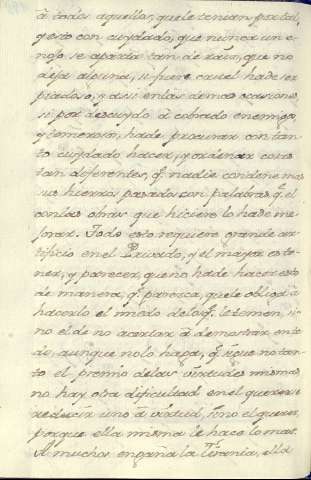 à todos aquellos, que le tenian por tal,
y esto con cuydado, que nunca un e-
noso se aparta tan de raiz, que no
deja alguna, si fuere cruel ha de ser
piadoso, y assi en las demas ocasiones
si por descuydo à cobrado enemigos,
y temeroso, ha de procurar con tan-
to cuydado hacer, y ordenar cosas
tan diferentes, q̃ nadie condene mas
sus hierros pasados con palabras, q̃ el
con las obras que hiciere lo ha de me-
jorar. Todo esto requiere grande ar-
tificio en el Privado, y el mayor es te-
ner, y parecer, que no ha de hacer esto
de manera, q̃ parezca, que le obliga à
hacerlo el miedo de los q̃ le temen, si-
no el de no acertar à demostrar en to-
do, aunque no lo haga, q̃ sigue no tan-
to el premio de las virtudes mismas
no hay otra dificultad en el querer se
reducir uno à virtud, sino el querer,
porque ella misma le hace lo mas.
A muchos engaña la Tirania, ella